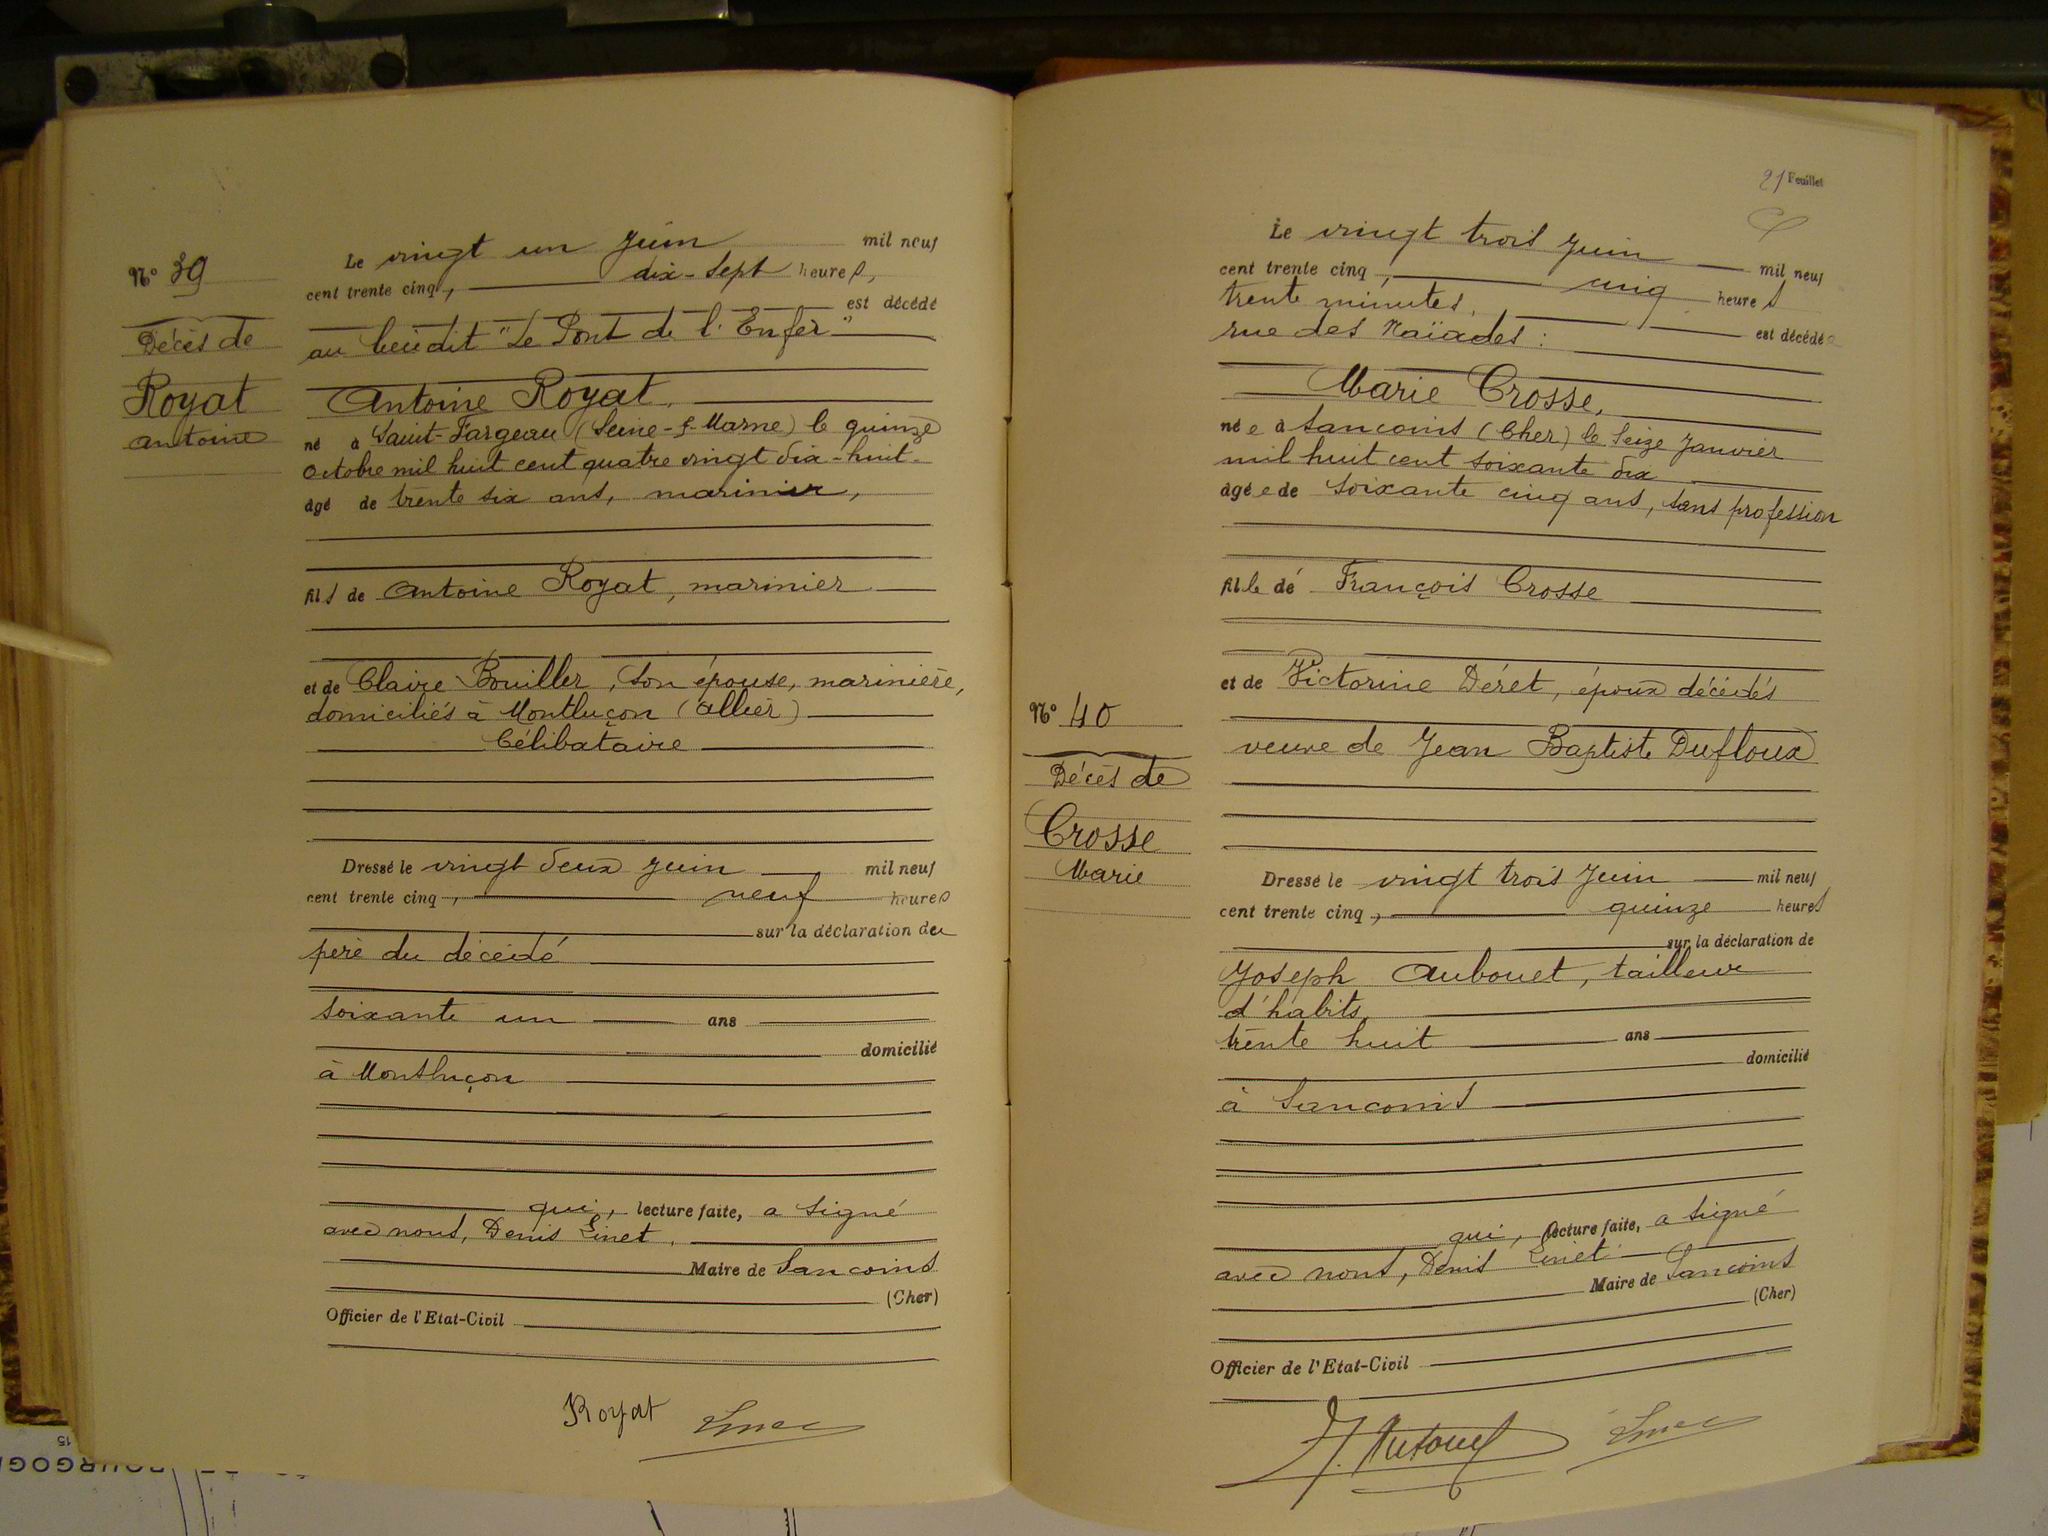 N° 39
Décès de
Royat
antoine
Le vingt un Juin mil neuf
cent trente cinq, dix-sept heures,
est décédé
au lieudit "Le Pont de l'Enfer"
Antoine Royat,
né à Saint-Fargeau (Seine-&-Marne) le quinze
Octobre mil huit cent quatre vingt dix-huit
âgé de trente six ans, marinier,
fils de Antoine Royat, marinier
et de Claire Bouiller, son épouse, marinière,
domiciliés à Montluçon (Allier)
Célibataire
Dressé le vingt deux Juin mil neuf
cent trente cinq, neuf heures
sur la déclaration du
père du décédé
soixante un ans
domicilié
à Montluçon
qui, lecture faite, a signé
avec nous, Denis Linet,
Maire de Sancoins
(Cher)
Officier de l'Etat-Civil
Royat Linet
21 Feuillet
N° 40
Décès de
Crosse
Marie
Le vingt trois Juin mil neuf
cent trente cinq, cinq heures
trente minutes,
rue des Naïades : est décédée
Marie Crosse,
née à Sancoins (Cher) le seize Janvier
mil huit cent soixante dix
âgée de soixante cinq ans, sans profession
fille de François Crosse
et de Victorine Déret, époux décédés
veuve de Jean Baptiste Dufloux
Dressé le vingt trois Juin mil neuf
cent trente cinq, quinze heures
sur la déclaration de
Joseph Aubouet, tailleur
d'habits,
trente huit ans
domicilié
à Sancoins
qui, lecture faite, a signé
avec nous, Denis Linet
Maire de Sancoins
(Cher)
Officier de l'Etat-Civil
J. Aubouet Linet